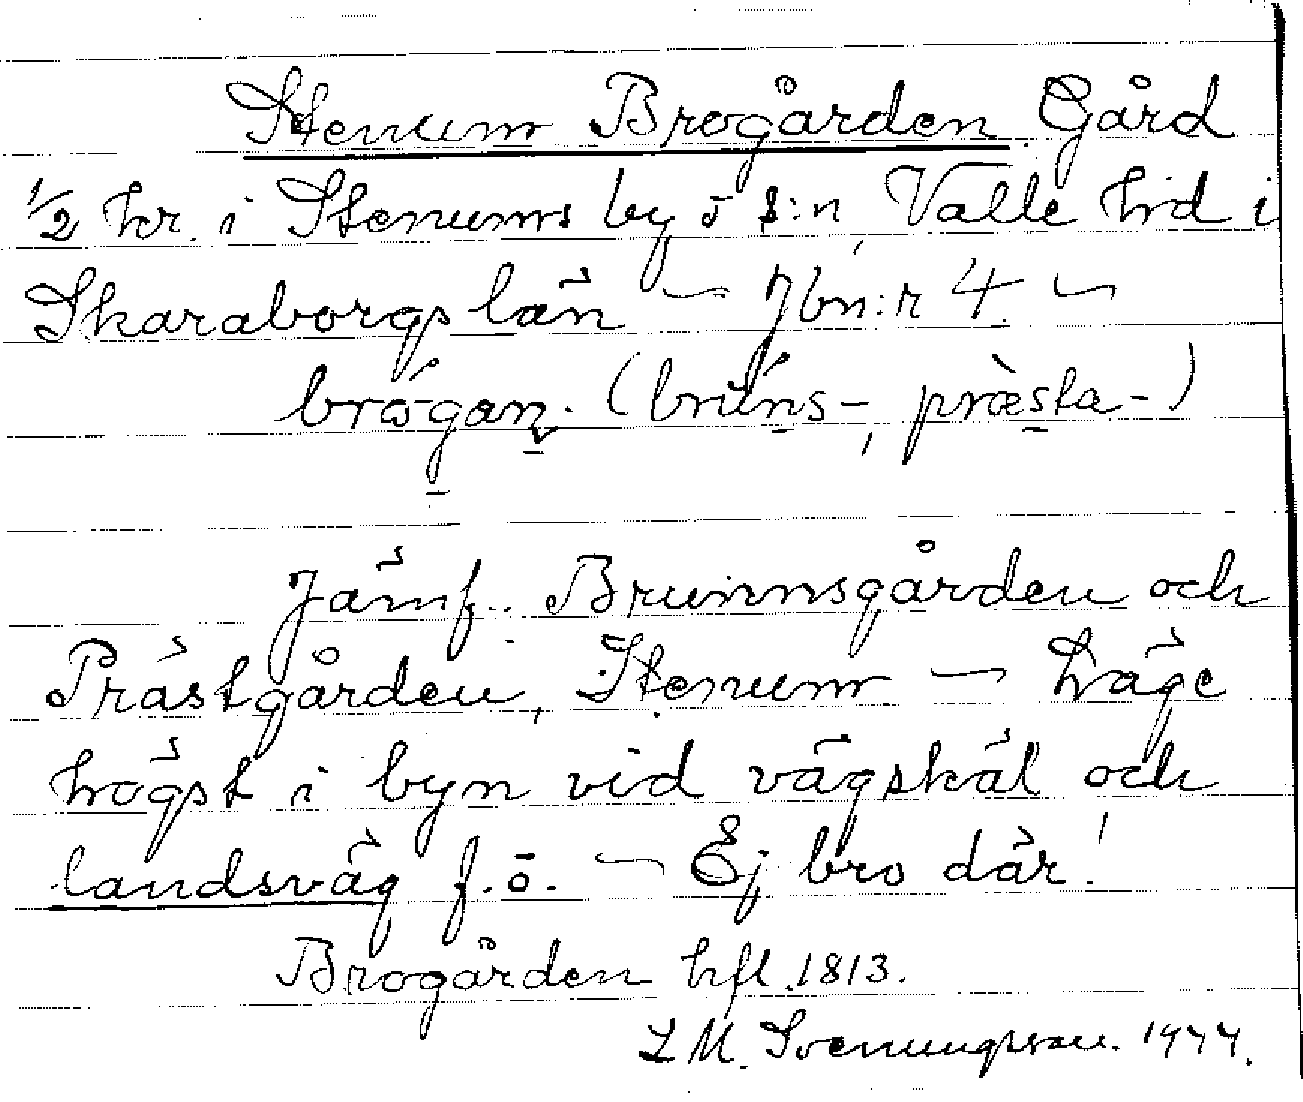 Stenum Brogården Gård
1/2 hr. i Stenums by o s:n, Valle hd i
Skaraborgs län — Jbn:r 4. —
brógan. (brúns-, præ̀sta-)
Jämf. Brunnsgården och
Prästgården, Stenum — Läge
högst i byn vid vägskäl och
landsväg f.ö. — Ej bro där!
Brogården hfl. 1813.
L M. Svenungsson. 1944.